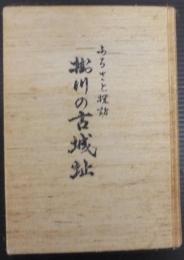 ふるさと探訪
掛川の古城址